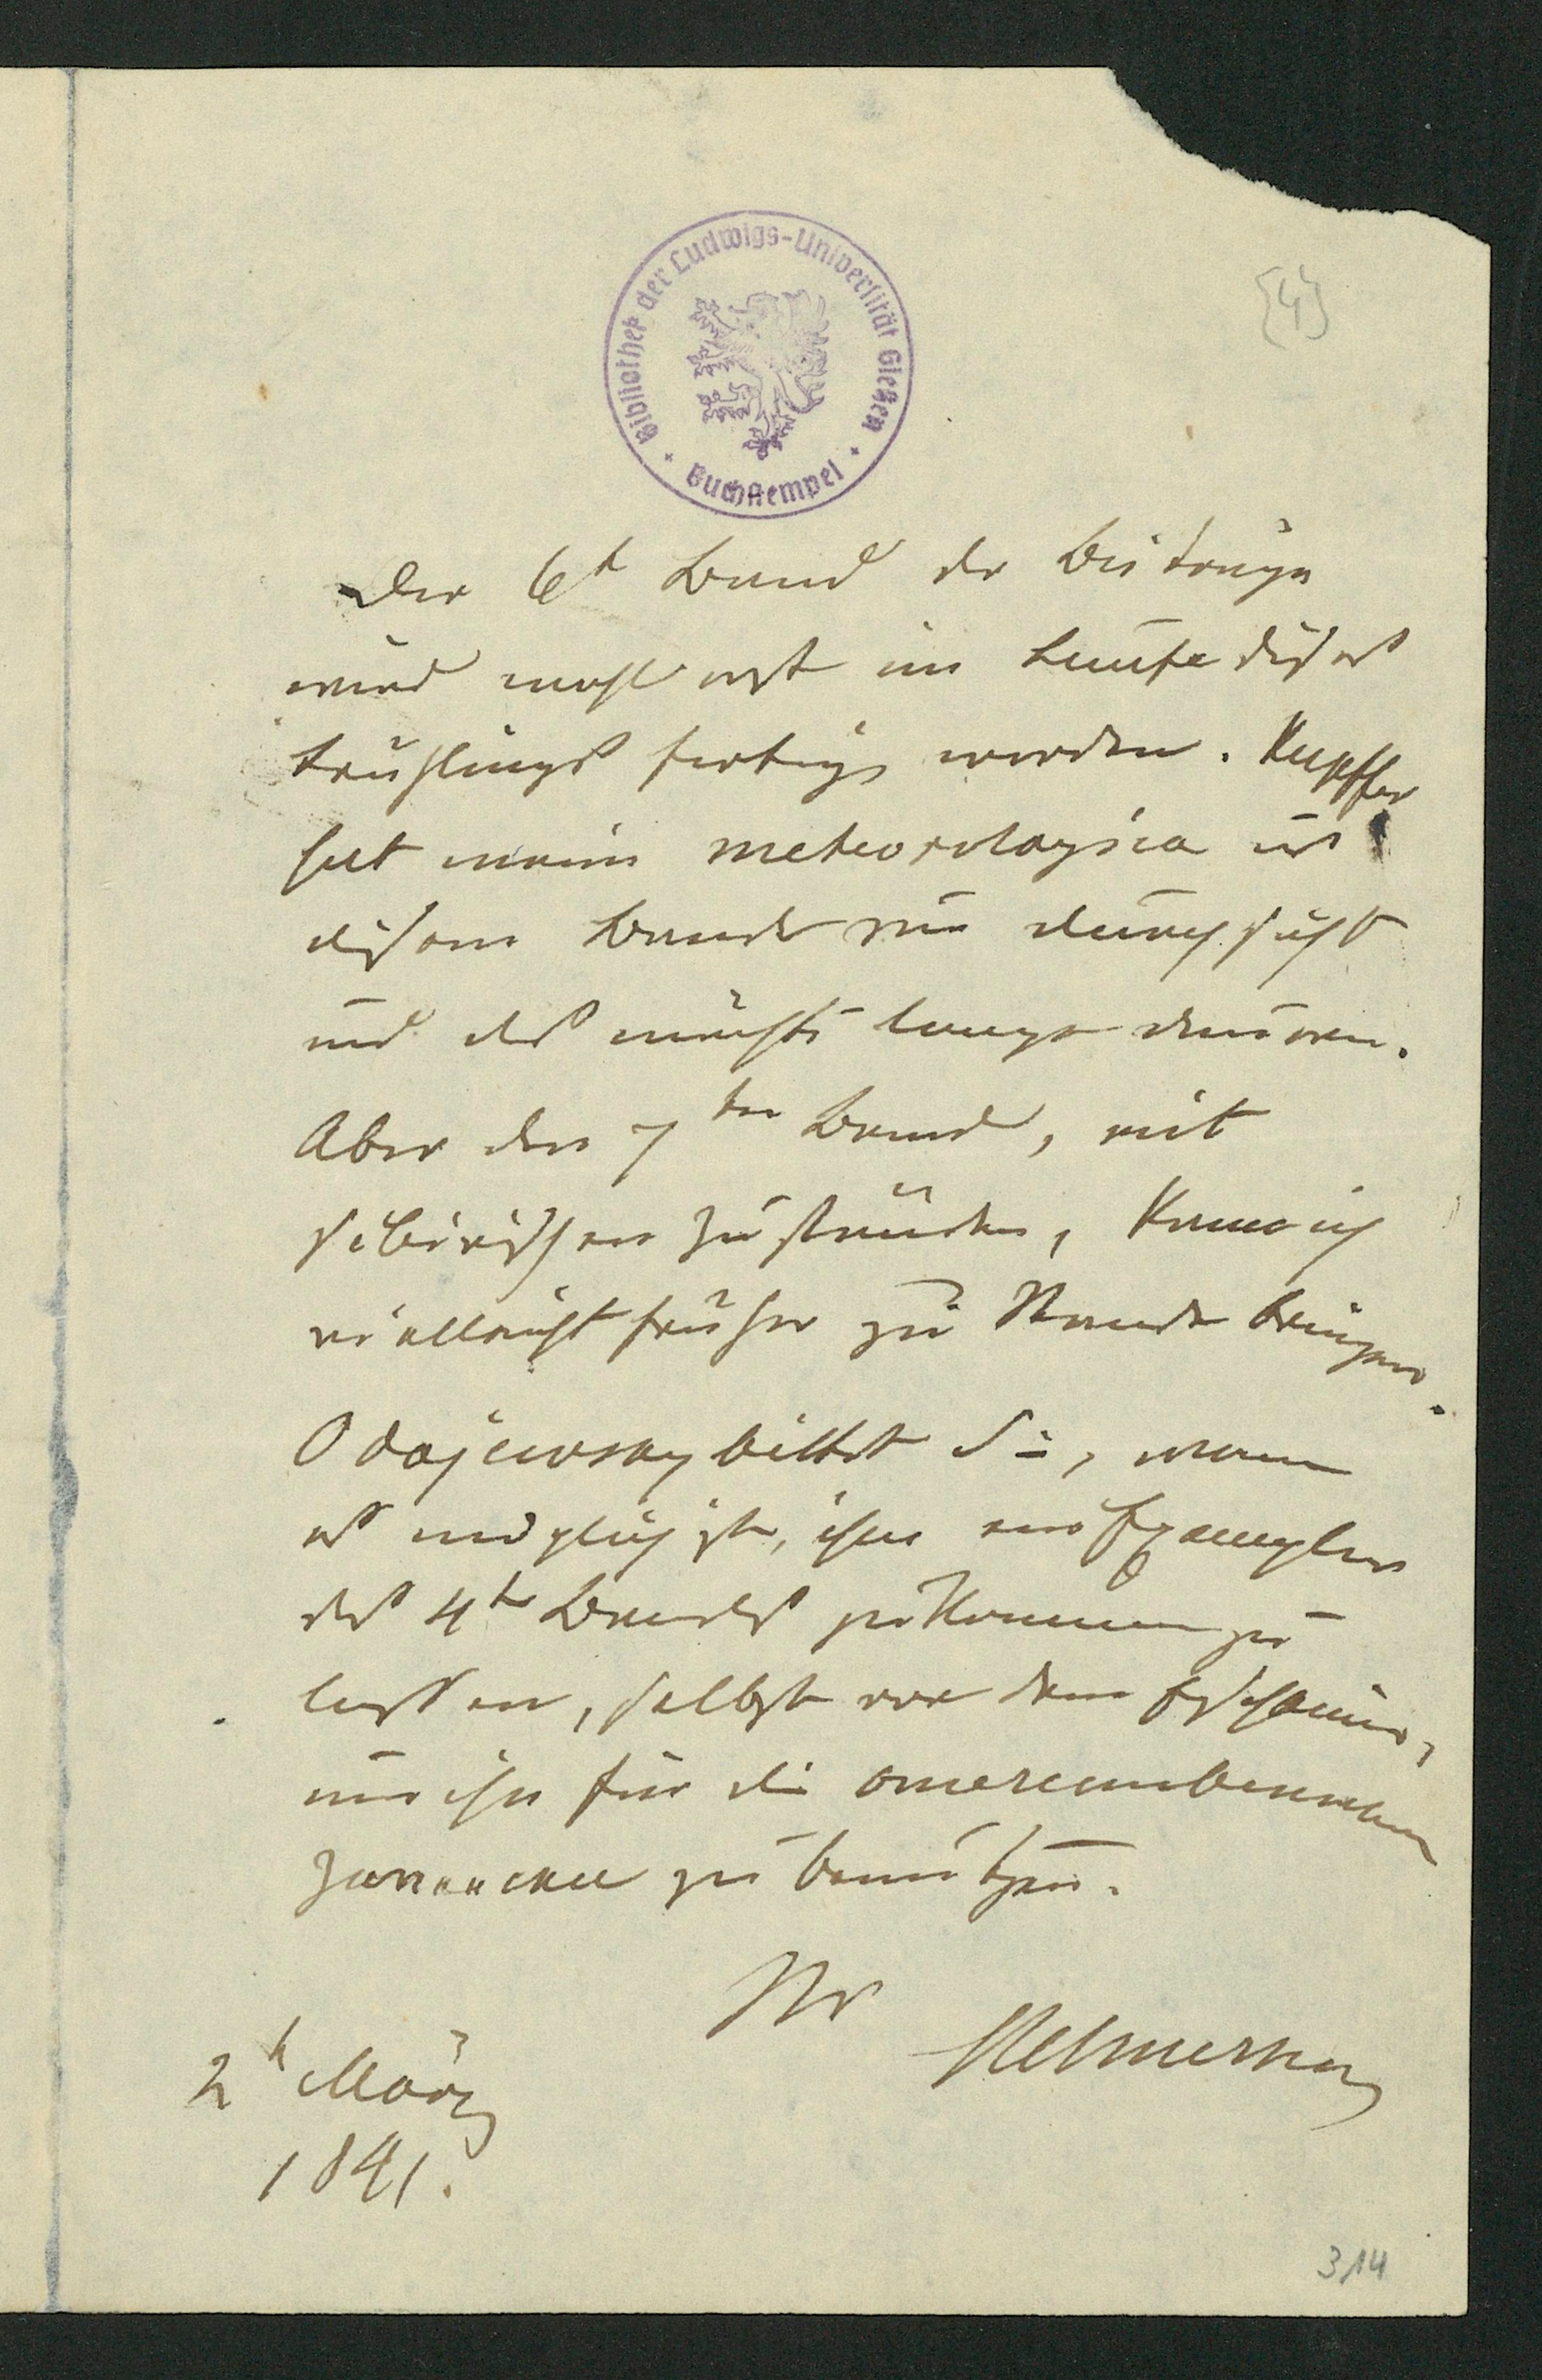 Bibliothek der Ludwigs-Universität Gießen
Buchstempel
{4}
Der 6t Band der Beiträge
wird wohl erst im Laufe dieses
Frühlings fertig werden. Kupffer
hat meine meteorologica in
diesem Bande nie durchsicht
und das möchte lange dauern.
Aber den 7ten Band, mit
sibirischen Zuständen, kann ich
vielleicht früher zu Stande bringen.
Odojewsky bittet Sie, wenn
es möglich ist, ihm ein Exemplar
des 4ten Bandes zukommen zu
lassen, selbst vor dem Erscheinen,
um ihn für die отечественныя
записки zu benützen.
Ihr
Helmersen
2t März
1841.
314